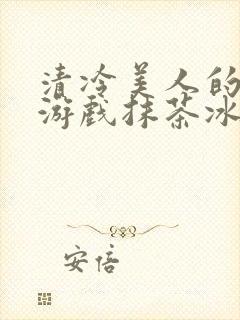 清冷美人的
游戏抹茶冰
安倍